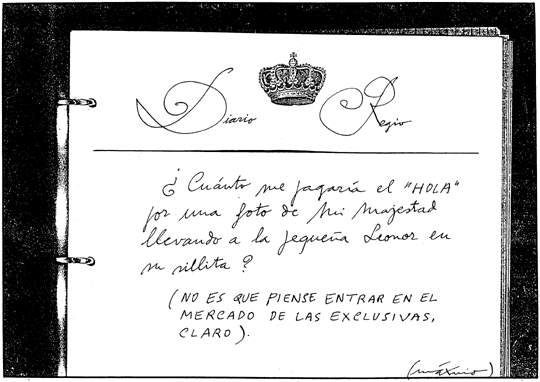 Diario Regio
¿Cuánto me pagaría el "HOLA"
por una foto de mi majestad
llevando a la pequeña Leonor en
su sillita?
(NO ES QUE PIENSE ENTRAR EN EL
MERCADO DE LAS EXCLUSIVAS,
CLARO).
(máximo)